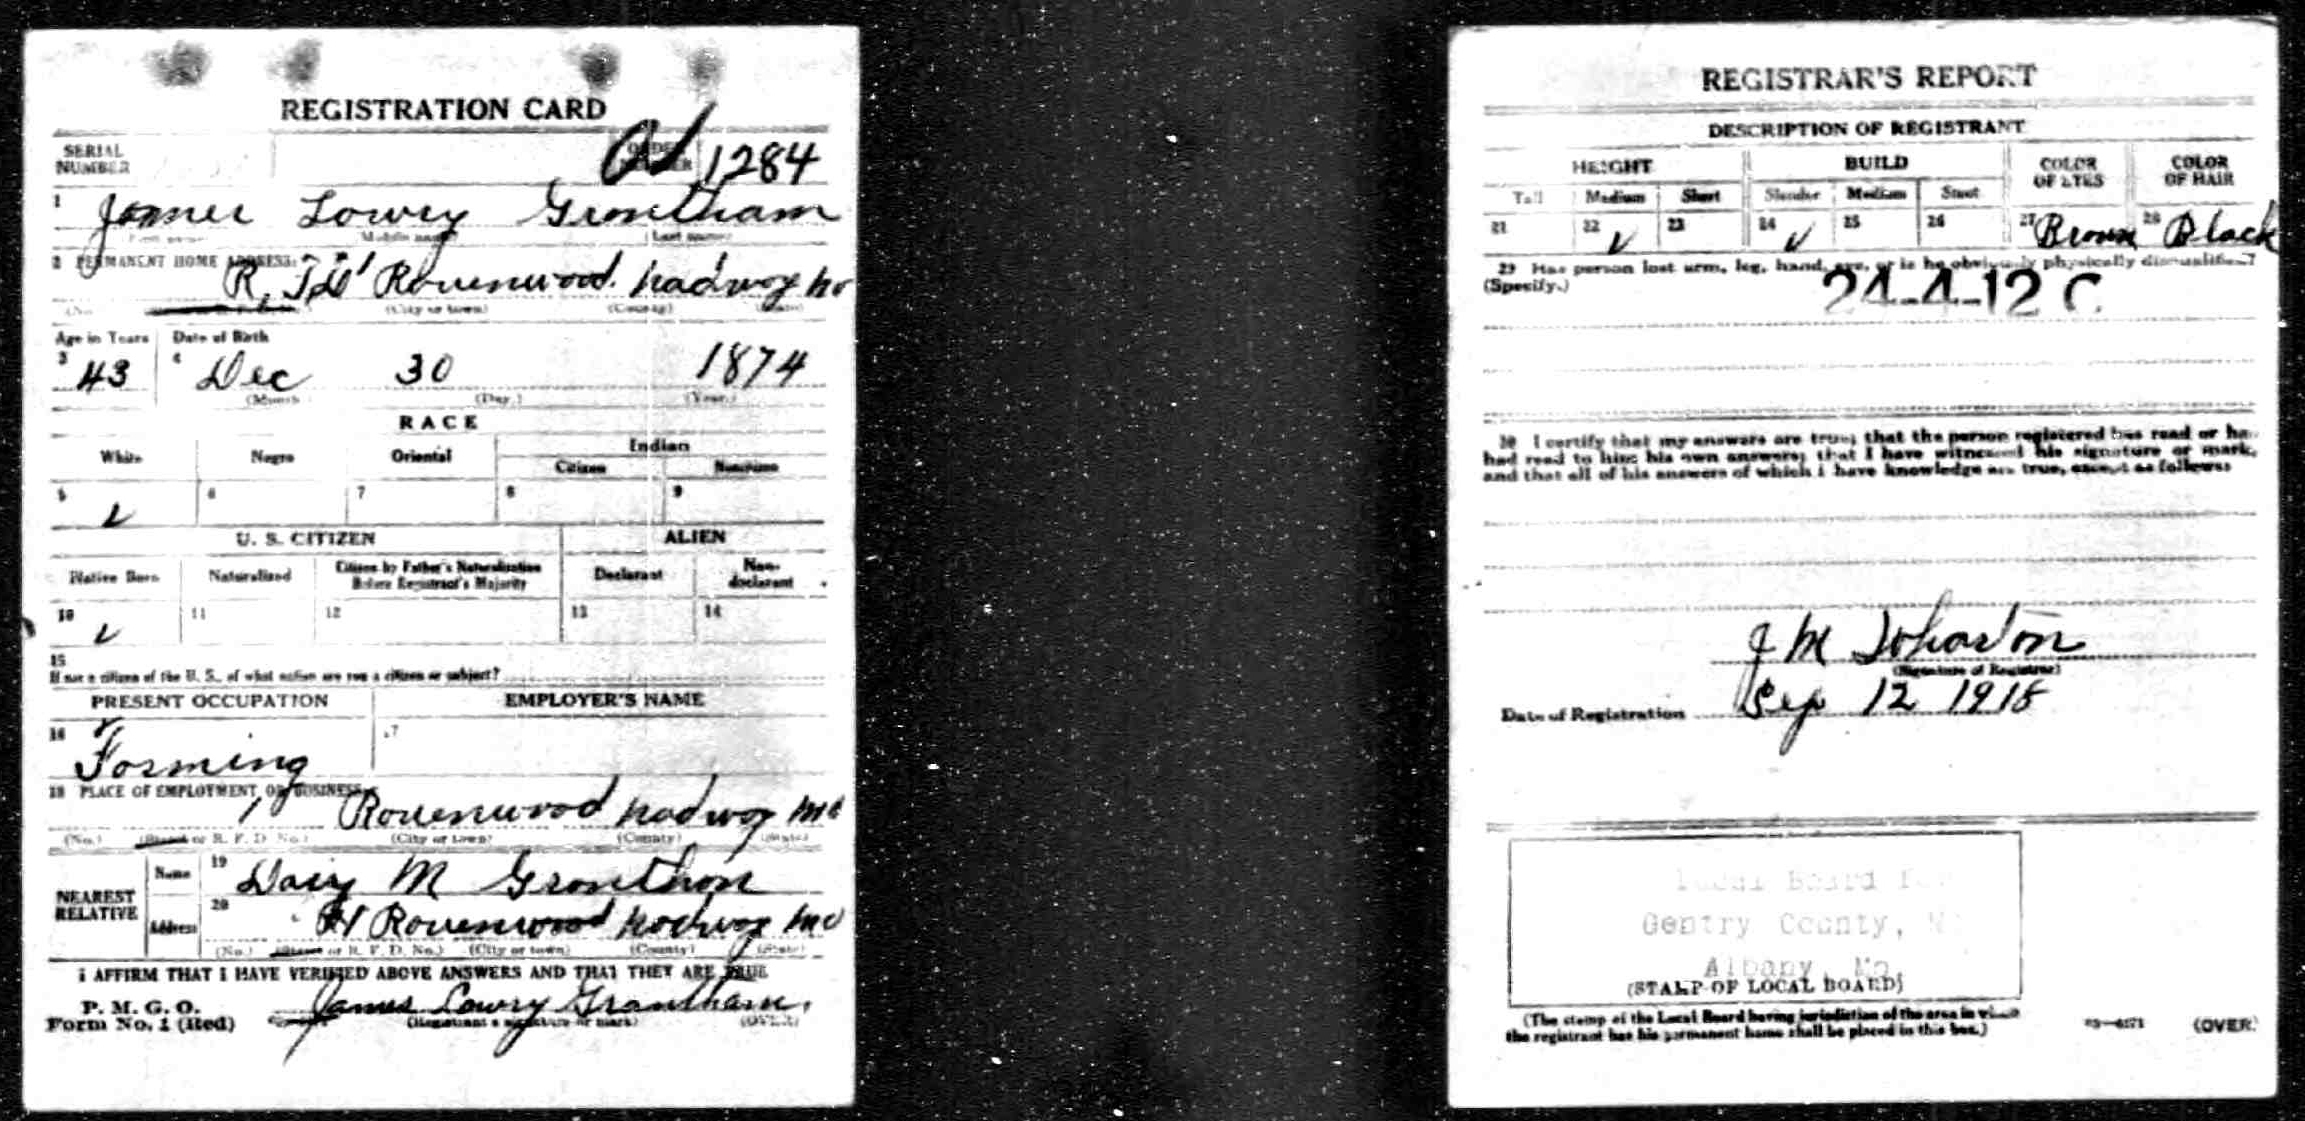 REGISTRATION CARD
SERIAL NUMBER
ORDER NUMBER 1284
1 James Lowry Grantham
First name Middle name Last name
2 PERMANENT HOME ADDRESS:
R. Ravenwood. Nodway Mo
(No.) (City or town) (County) (State)
Age in Years Date of Birth
3 43 4 Dec 30 1874
(Month) (Day.) (Year.)
RACE
White Negro Oriental Indian
Citizen Noncitizen
5 ✓ 6 7 8 9
U. S. CITIZEN ALIEN
Native Born Naturalized Citizen by Father's Naturalization Before Registrant's Majority Declarant Non-declarant
10 ✓ 11 12 13 14
15
If not a citizen of the U. S., of what nation are you a citizen or subject?
PRESENT OCCUPATION EMPLOYER'S NAME
16 Farming 17
18 PLACE OF EMPLOYMENT OR BUSINESS:
1 Ravenwood Nodway Mo
(No.) (Street or R. F. D. No.) (City or town) (County) (State)
NEAREST RELATIVE
Name 19 Daisy M Granthon
Address 20 Ravenwood Nodway Mo
(No.) (Street or R. F. D. No.) (City or town) (County) (State)
I AFFIRM THAT I HAVE VERIFIED ABOVE ANSWERS AND THAT THEY ARE TRUE
P. M. G. O.
Form No. 1 (Red) James Lowry Grantham.
(Registrant's signature or mark) (OVER)
REGISTRAR'S REPORT
DESCRIPTION OF REGISTRANT
HEIGHT BUILD COLOR OF EYES COLOR OF HAIR
Tall Medium Short Slender Medium Stout
21 22 ✓ 23 24 ✓ 25 26 27 Brown 28 Black
29 Has person lost arm, leg, hand, eye, or is he obviously physically disqualified?
(Specify.) 24-4-12 C
30 I certify that my answers are true; that the person registered has read or has
had read to him his own answers; that I have witnessed his signature or mark,
and that all of his answers of which I have knowledge are true, except as follows:
J M Wharton
(Signature of Registrar)
Date of Registration Sep 12 1918
Local Board for
Gentry County, M
Albany, Mo
(STAMP OF LOCAL BOARD)
(The stamp of the Local Board having jurisdiction of the area in which
the registrant has his permanent home shall be placed in this box.)
(OVER)